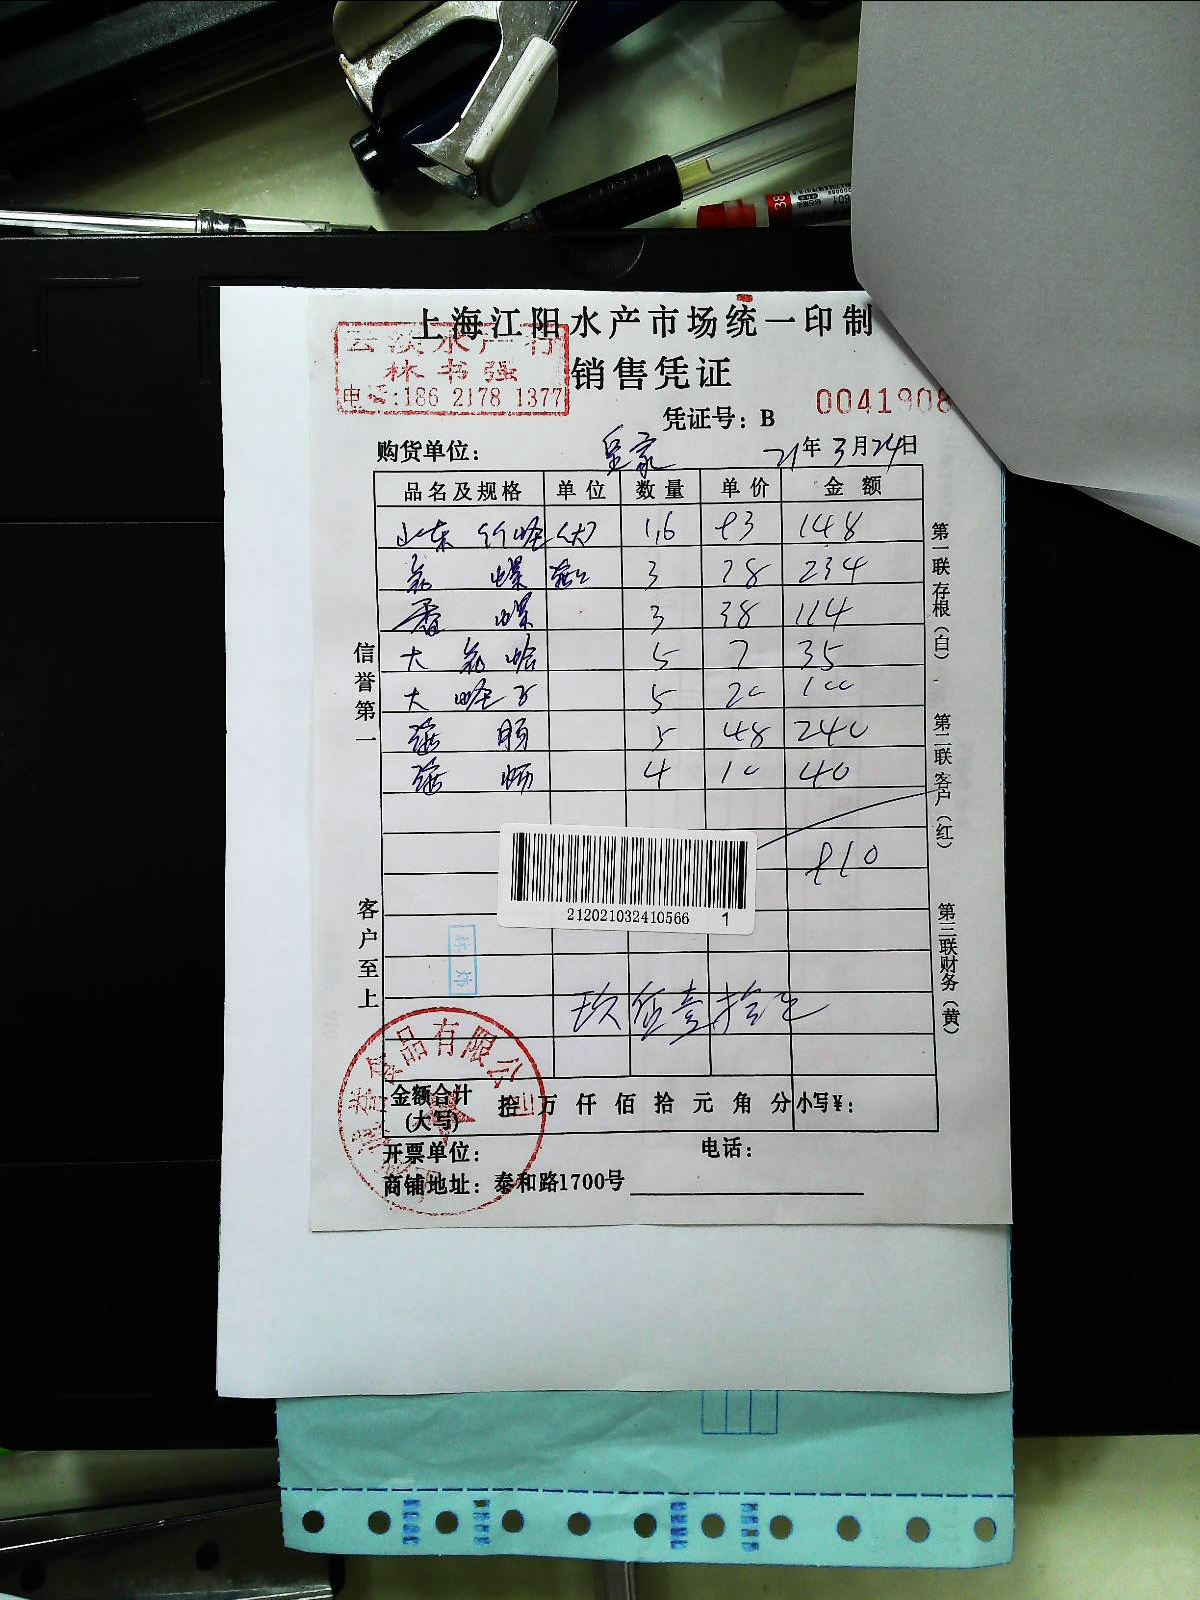 上海江阳水产市场统一印制
水产行
林书强
电话:186 2178 1377
销售凭证
凭证号：B 0041908
购货单位： 皇家 21年3月24日
品名及规格 单位 数量 单价 金额
山东 (大) 1.6 93 148
螺 3 78 234
香螺 3 38 114
大 5 7 35
大 5 20 100
5 48 240
4 10 40
910
212021032410566 1
林炜
玖佰壹拾元
金额合计(大写) 拾 万 仟 佰 拾 元 角 分 小写¥：
食品有限公司
开票单位： 电话：
商铺地址：泰和路1700号
信誉第一
客户至上
第一联存根（白）
第二联客户（红）
第三联财务（黄）